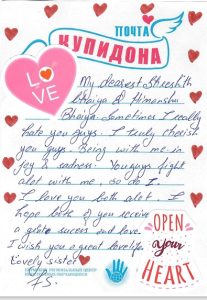 ПОЧТА
КУПИДОНА
LOVE
My dearest Shreshth
bhaiya & Himanshu
Bhaiya. Sometimes I really
hate you guys. I truly cherish
you guys. Being with me in
joy & sadness. You guys fight
alot with me, so do I.
I love you both alot. I
hope both of you receive
a great success and love
I wish you a great lovelife.
Lovely sister
OPEN
your
HEART